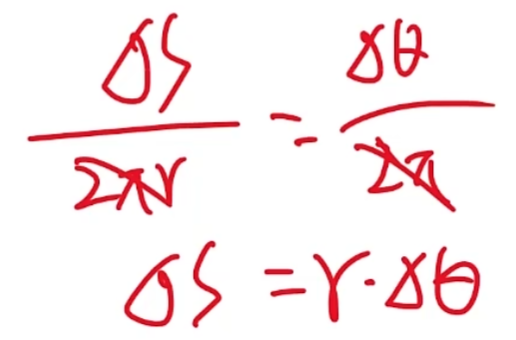 Δs / 2πr = Δθ / 2π
Δs = r · Δθ